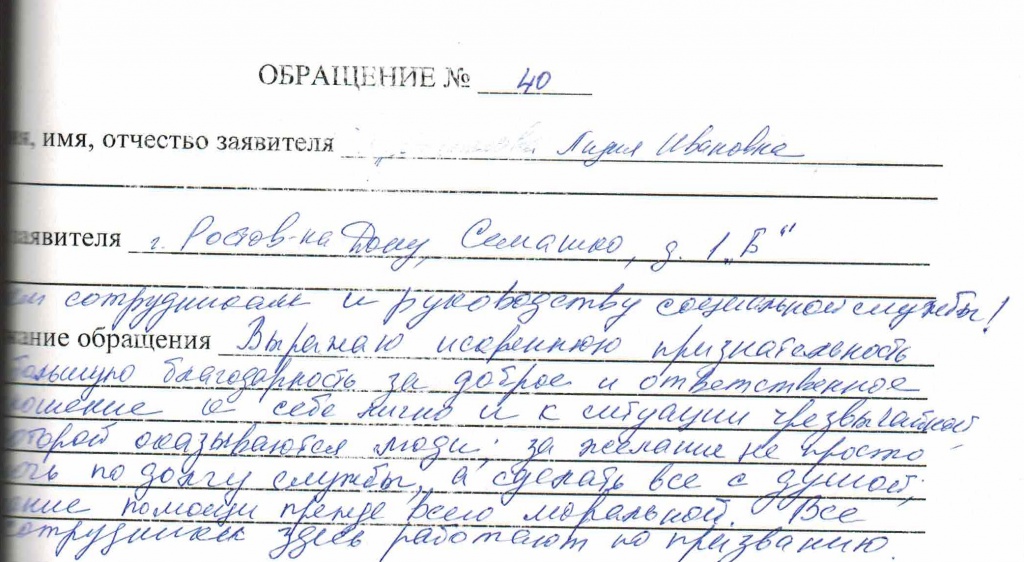 ОБРАЩЕНИЕ № 40
имя, отчество заявителя Лидия Ивановна
заявителя г. Ростов-на Дону, Семашко, д. 1 „Б“
сотрудникам и руководству социальной службы!
обращения Выражаю искреннюю признательность
большую благодарность за доброе и ответственное
к себе лично и к ситуации чрезвычайной,
которой оказываются люди; за желание не просто
по долгу службы, а сделать все с душой,
помощи прежде всего моральной. Все
сотрудники здесь работают по призванию.